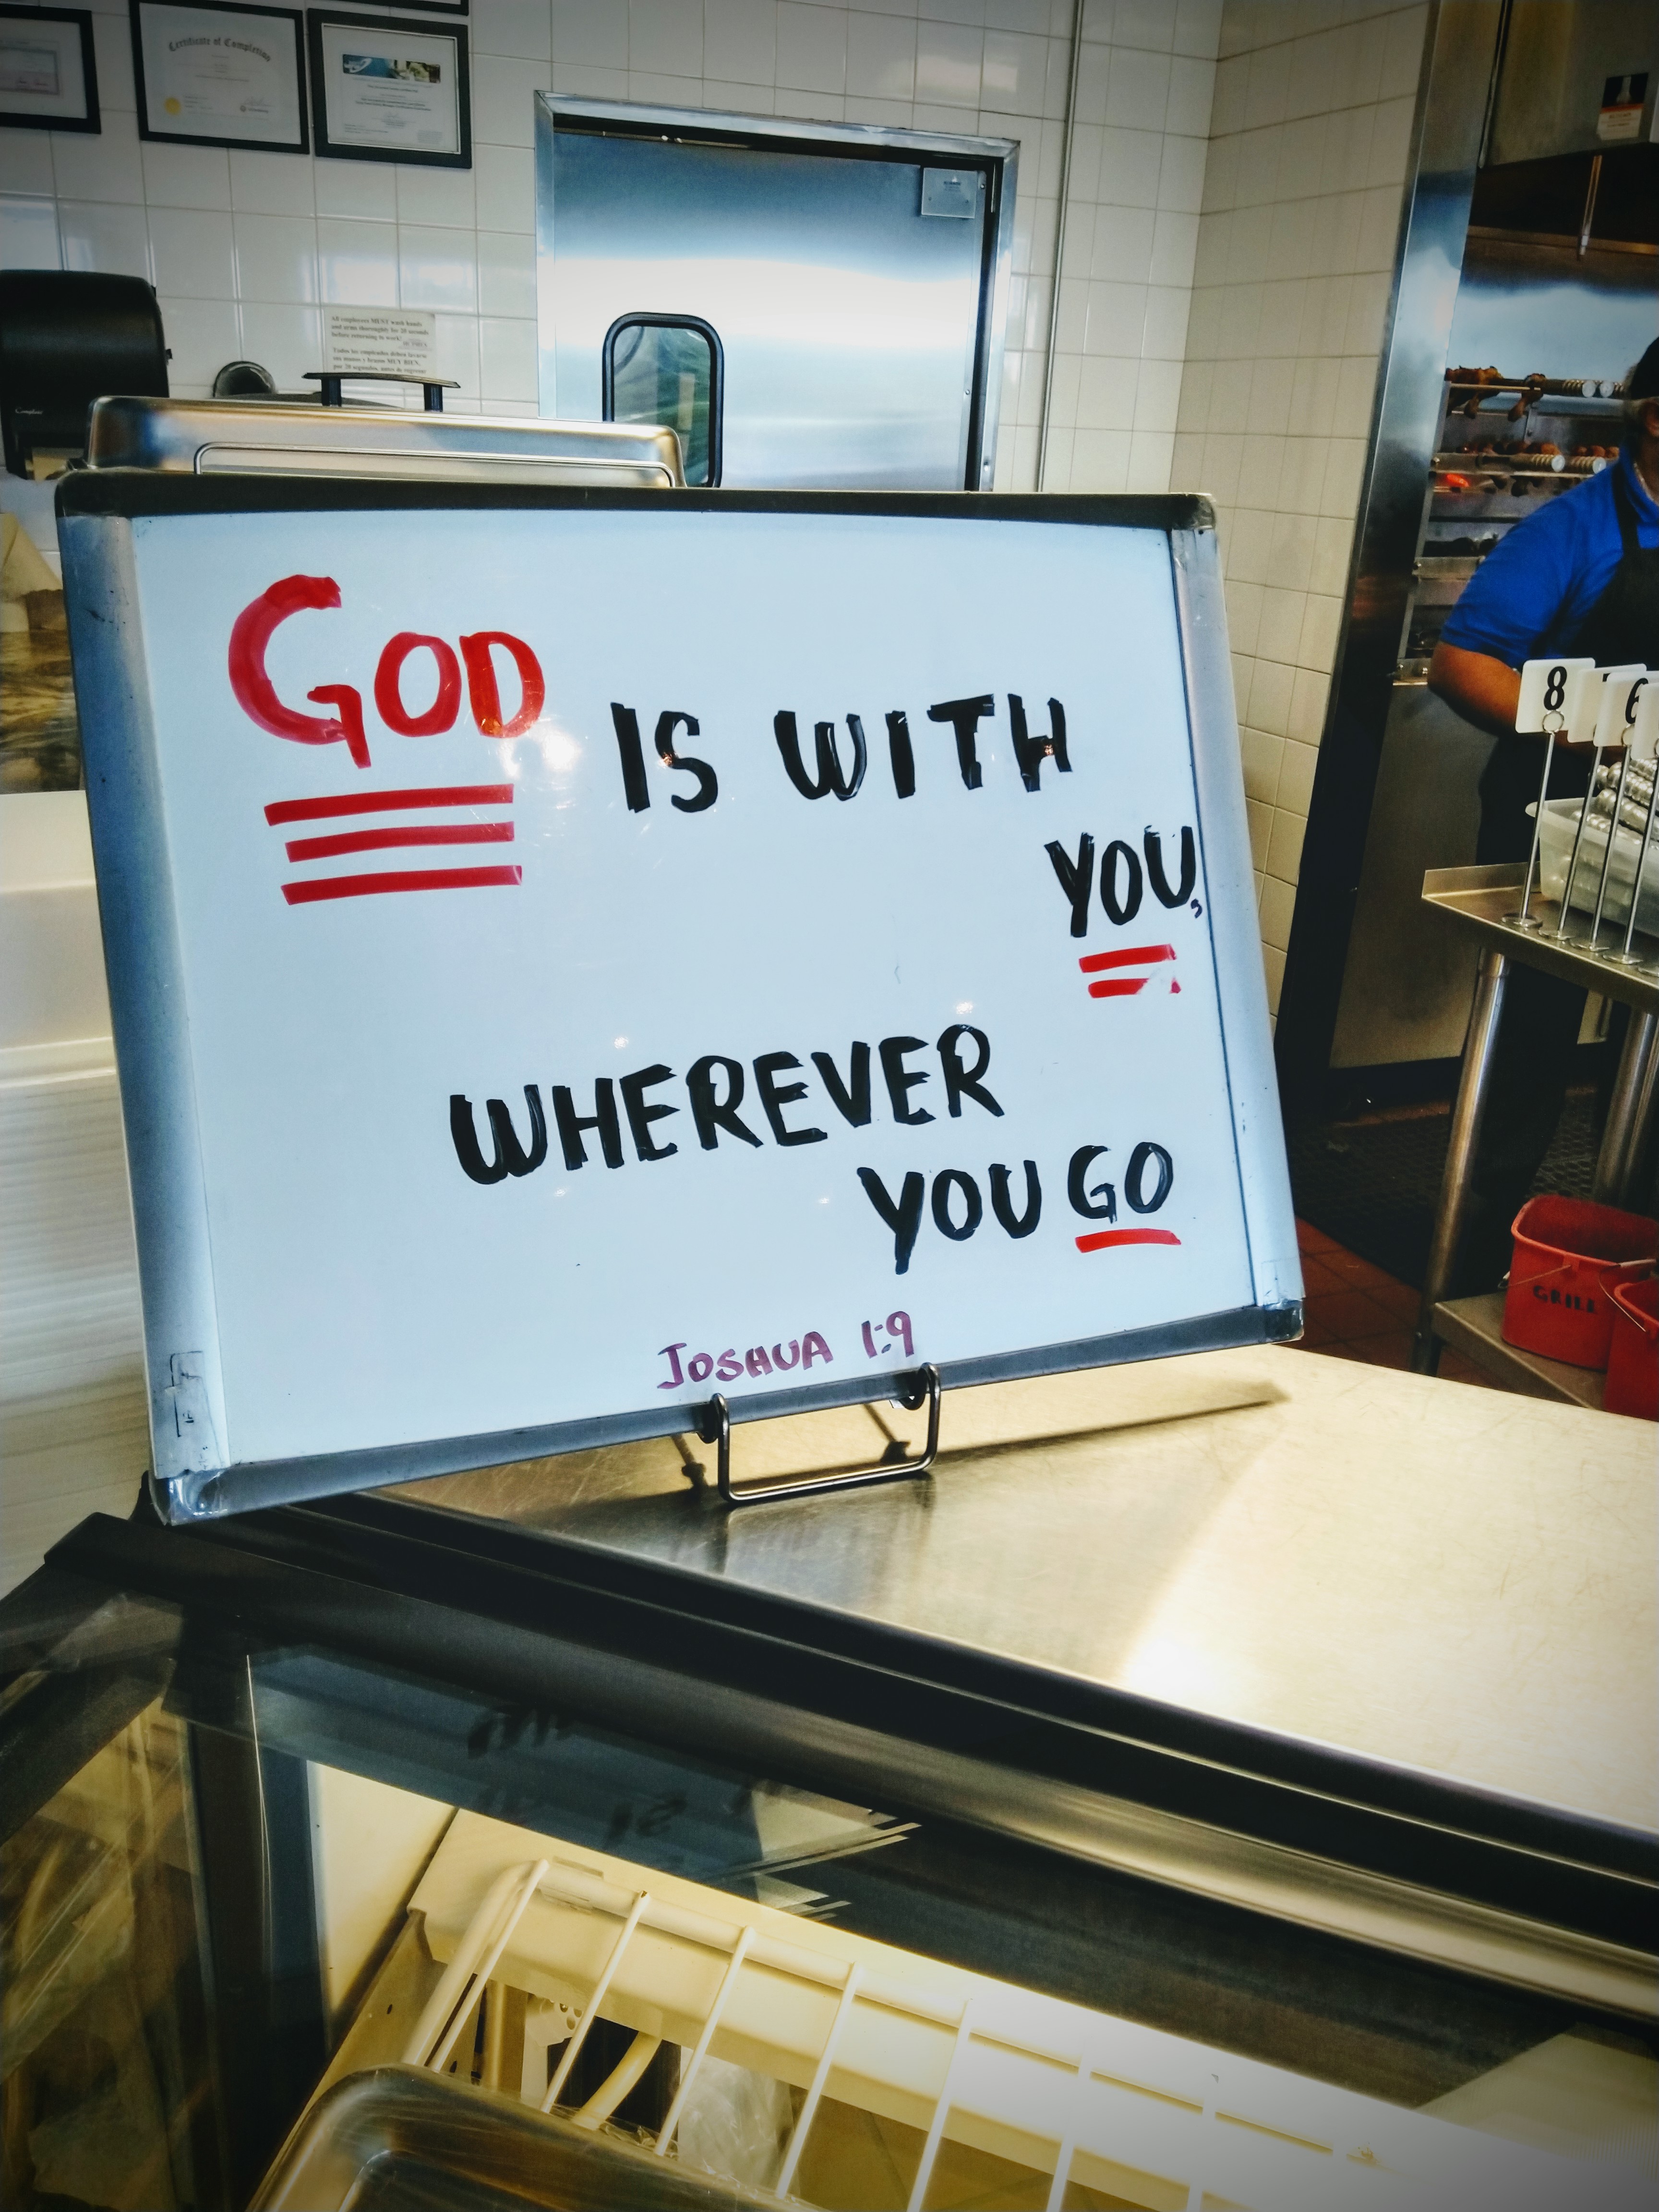 Certificate of Completion
All employees MUST wash hands
and arms thoroughly for 20 seconds
before returning to work!
Todos los empleados deben lavarse
sus manos y brazos MUY BIEN,
por 20 segundos, antes de regresar
GOD
IS WITH
YOU,
WHEREVER
YOU GO
JOSHUA 1:9
8
6
GRILL